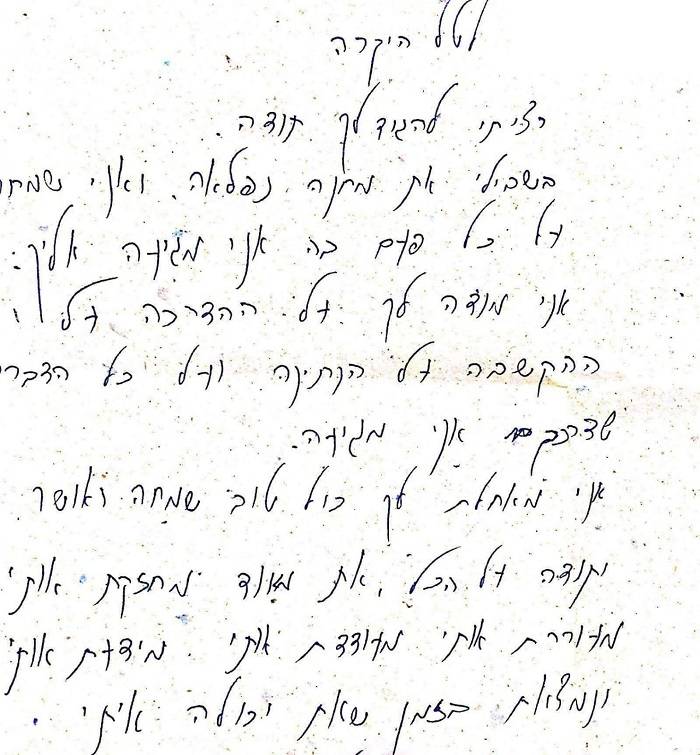 לטל היקרה
רציתי להגיד לך תודה.
בשבילי את מתנה נפלאה. ואני שמחה
על כל פעם בה אני מגיעה אליך.
אני מודה לך. על ההדרכה על
ההקשבה על הנתינה ועל כל הדברים
אני מגיעה.
אני מאחלת לך כול טוב שמחה ואושר
ותודה על הכל, את מאוד מחזקת אותי
מעוררת אותי מעודדת אותי. מידעת אותי
ונמצאת בזמן שאת יכולה איתי.